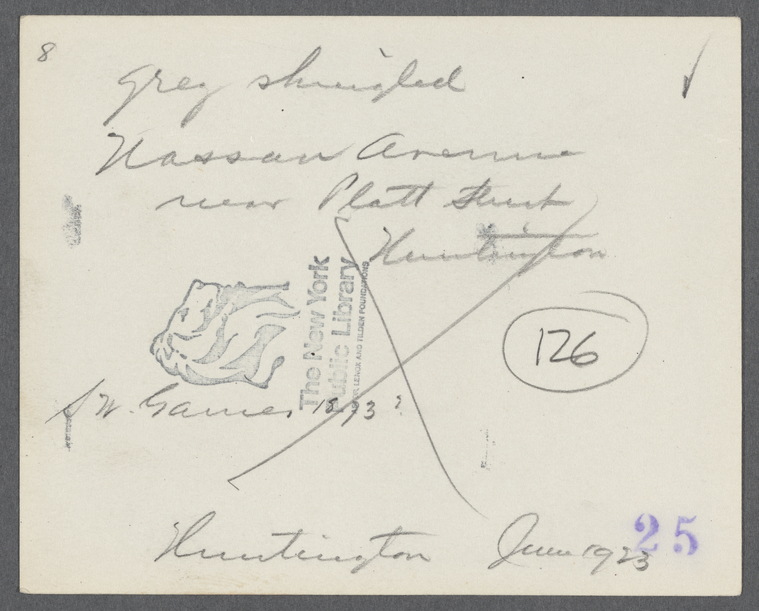 8
Grey shingled
Nassau Avenue
near Platt Street
Huntington
The New York
Public Library
LENOX AND TILDEN FOUNDATIONS
126
S W. Gaines 1893?
Huntington June 1923
25